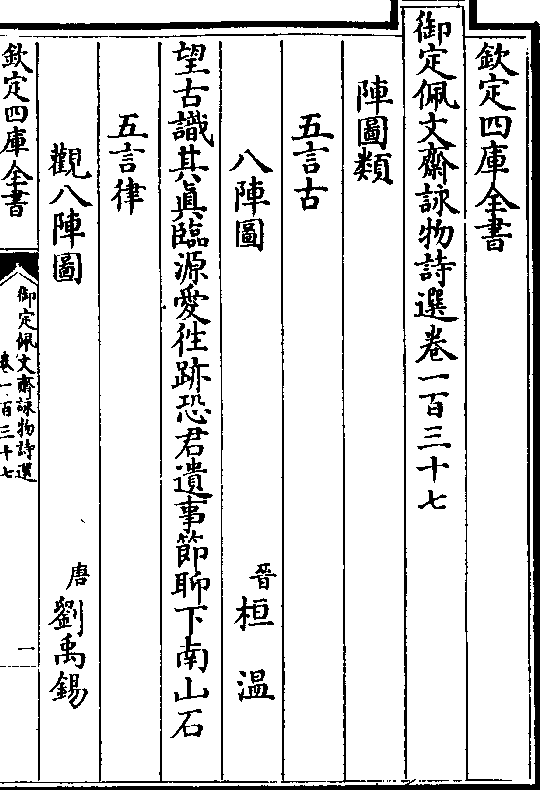 欽定四庫全書
御定佩文齋詠物詩選卷一百三十七
陣圖類
五言古
八陣圖　晉桓溫
望古識其真臨源愛徃跡恐君遺事節聊下南山石
五言律
觀八陣圖　唐劉禹錫
欽定四庫全書
御定佩文齋詠物詩選
卷一百三十七
一